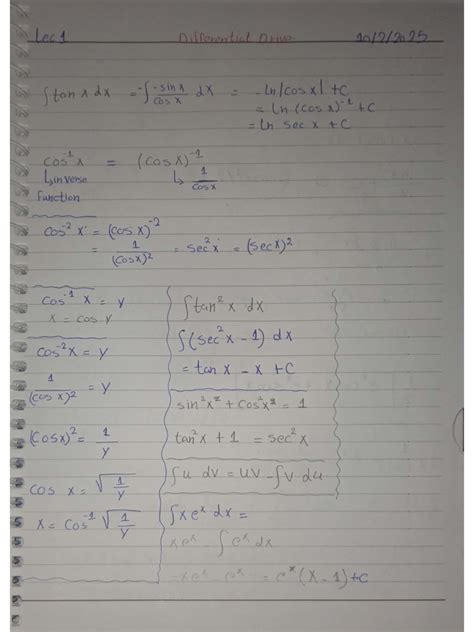 Lec 1 Differential Drive 10/2/2025
∫tan x dx = -∫ -sin x / cos x dx = -ln|cos x| + C
= ln (cos x)⁻¹ + C
= ln sec x + C
cos⁻¹ x = (cos x)⁻¹
↳ inverse function ↳ 1 / cos x
cos⁻² x = (cos x)⁻²
= 1 / (cos x)² = sec² x = (sec x)²
cos⁻¹ x = y
x = cos y
cos⁻² x = y
1 / (cos x)² = y
(cos x)² = 1 / y
cos x = √(1 / y)
x = cos⁻¹ √(1 / y)
∫tan² x dx
∫(sec² x - 1) dx
= tan x - x + C
sin² x + cos² x = 1
tan² x + 1 = sec² x
∫u dv = uv - ∫v du
∫x eˣ dx =
x eˣ - ∫eˣ dx
x eˣ - eˣ = eˣ (x - 1) + C